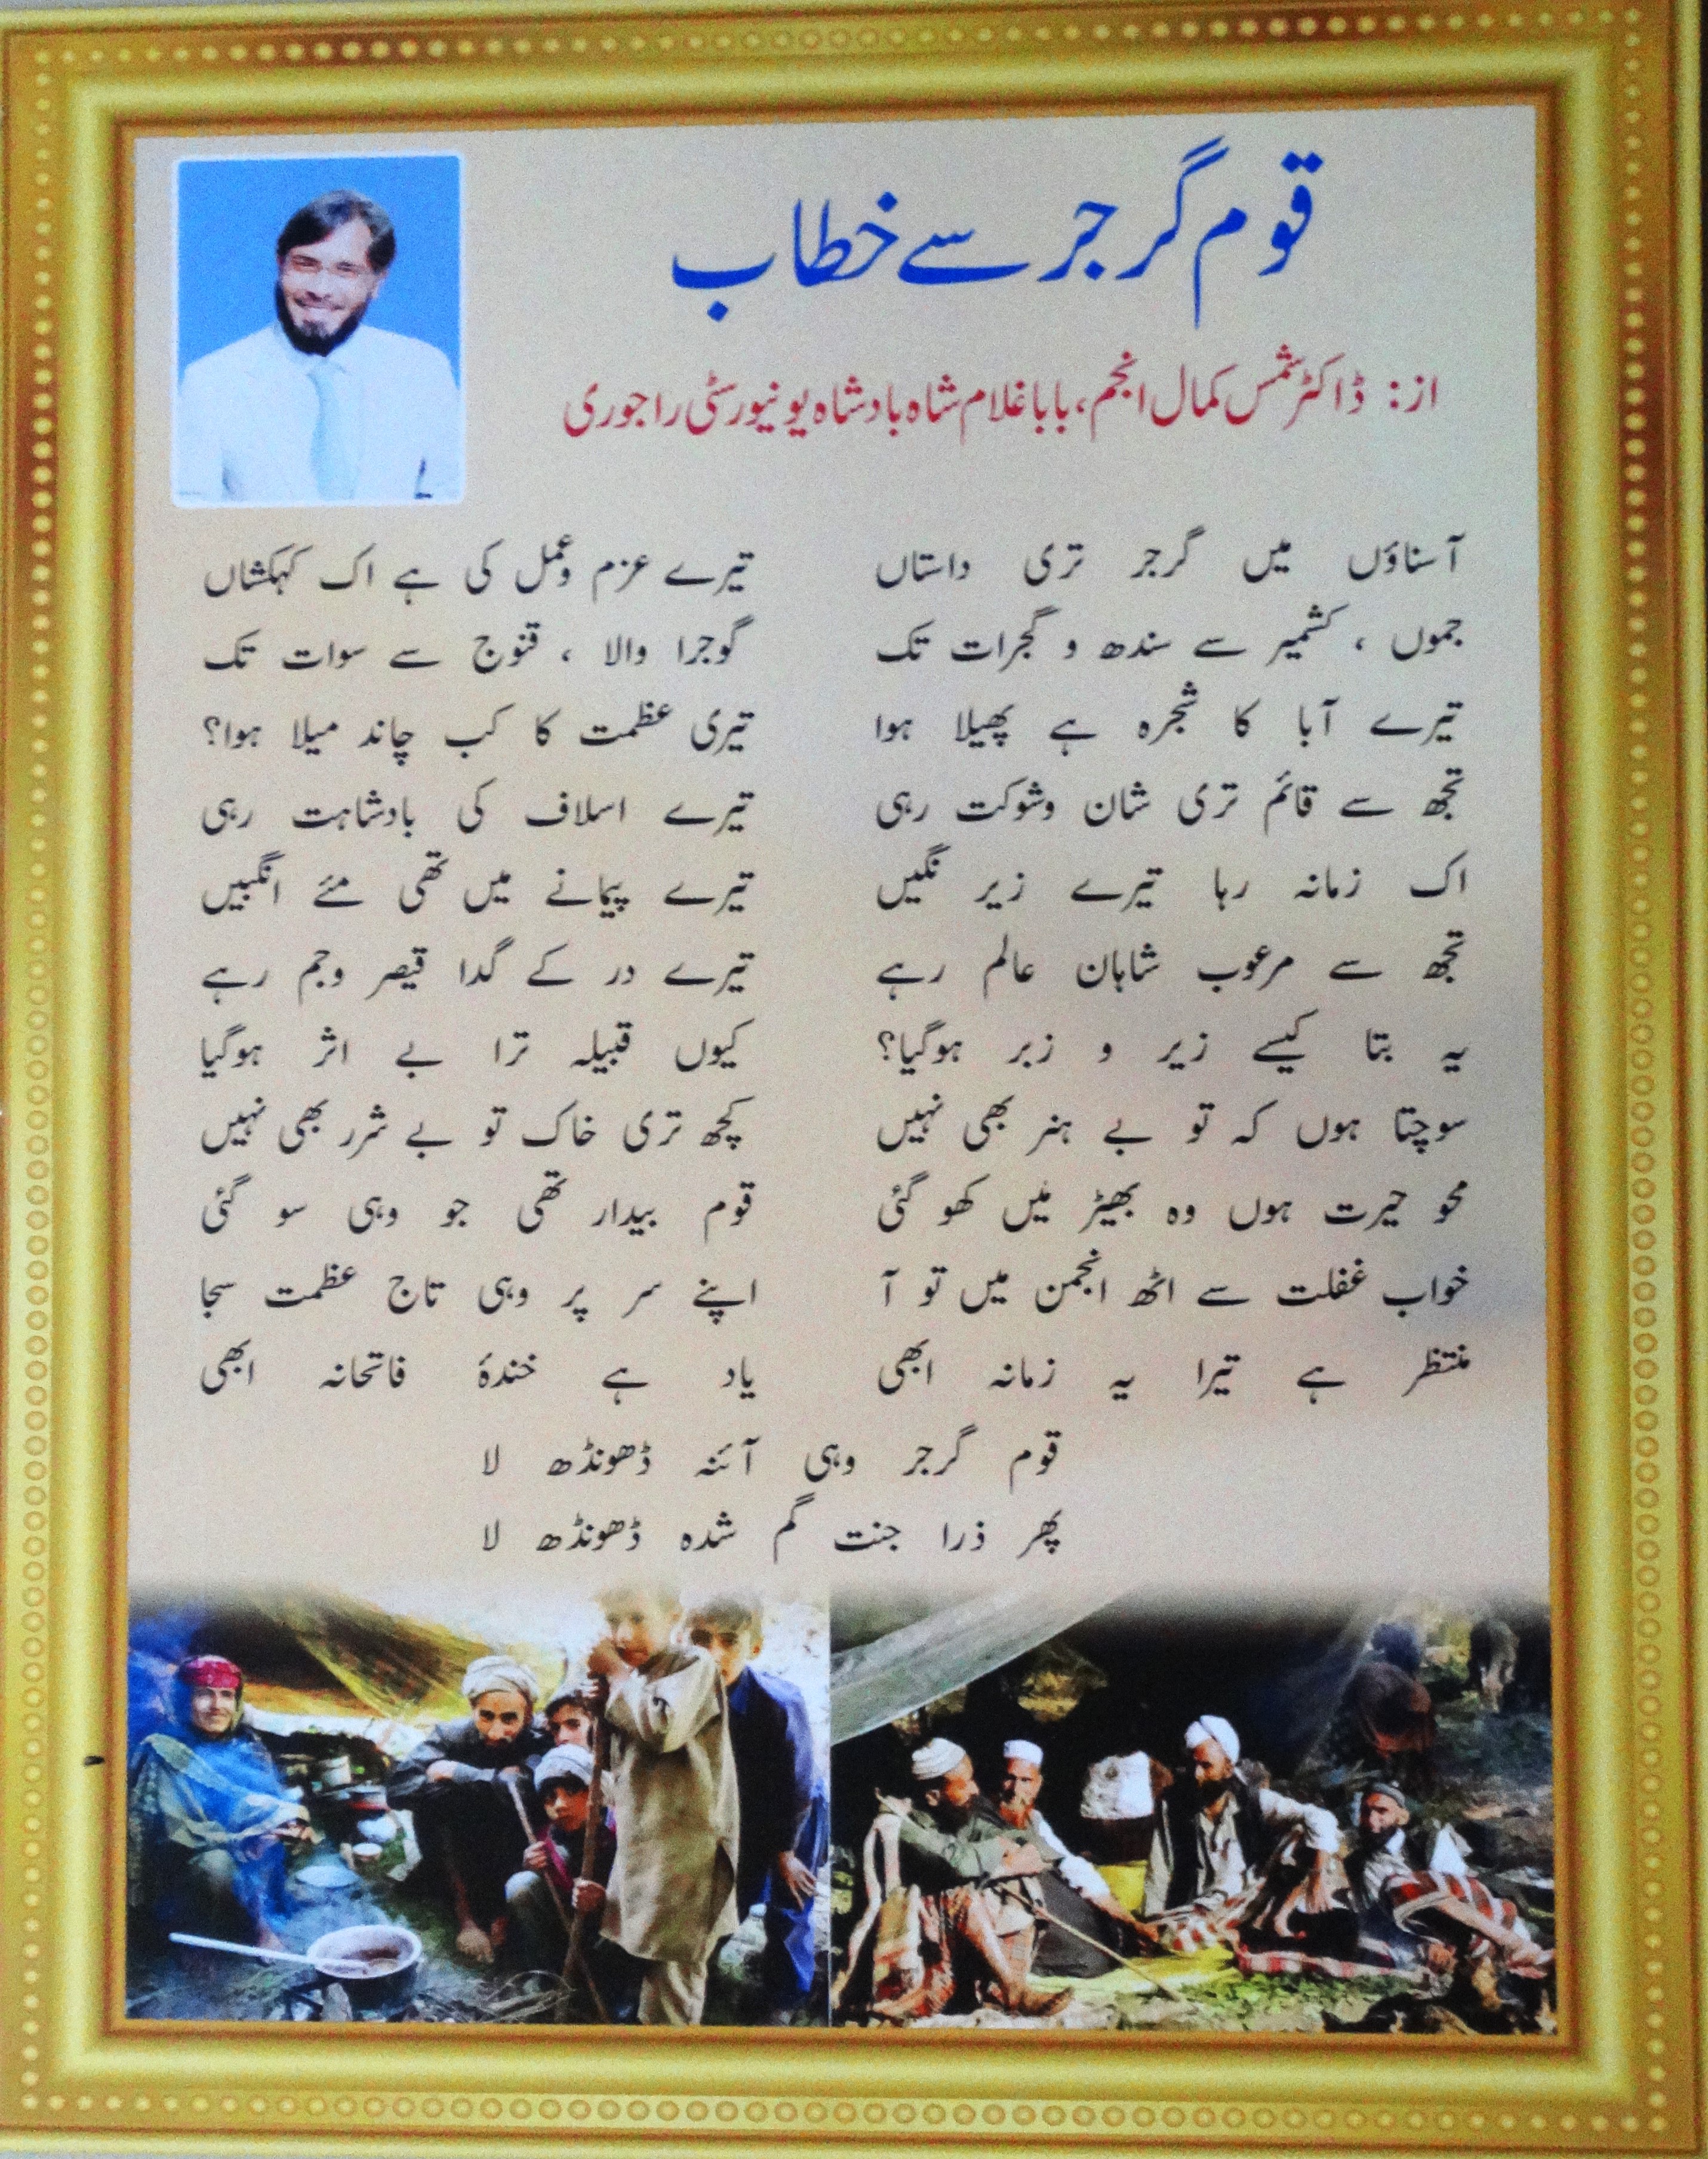 قوم گرجر سے خطاب
از: ڈاکٹر شمس کمال انجم، بابا غلام شاہ بادشاہ یونیورسٹی راجوری
آ سناؤں میں گرجر تری داستاں تیرے عزم وعمل کی ہے اک کہکشاں
جموں ، کشمیر سے سندھ و گجرات تک گوجرا والا ، قنوج سے سوات تک
تیرے آبا کا شجرہ ہے پھیلا ہوا تیری عظمت کا کب چاند میلا ہوا؟
تجھ سے قائم تری شان وشوکت رہی تیرے اسلاف کی بادشاہت رہی
اک زمانہ رہا تیرے زیر نگیں تیرے پیمانے میں تھی مئے انگبیں
تجھ سے مرعوب شاہان عالم رہے تیرے در کے گدا قیصر وجم رہے
یہ بتا کیسے زیر و زبر ہوگیا؟ کیوں قبیلہ ترا بے اثر ہوگیا
سوچتا ہوں کہ تو بے ہنر بھی نہیں کچھ تری خاک تو بے شرر بھی نہیں
محو حیرت ہوں وہ بھیڑ میں کھو گئی قوم بیدار تھی جو وہی سو گئی
خواب غفلت سے اٹھ انجمن میں تو آ اپنے سر پر وہی تاج عظمت سجا
منتظر ہے تیرا یہ زمانہ ابھی یاد ہے خندۂ فاتحانہ ابھی
قوم گرجر وہی آئنہ ڈھونڈھ لا
پھر ذرا جنت گم شدہ ڈھونڈھ لا